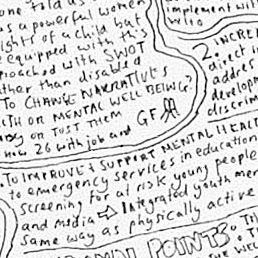 one told as
as a powerful women
ights of a child but
equipped with this
proached with SWOT
ther than disabled
To CHANGE NARRATIVES
LTH ON MENTAL WELL BEING?
on JUST THEM
now 26 with job and
GF
implement wi
who
2. INCRE
direct i
addres
developm
discrim
TO IMPROVE & SUPPORT MENTAL HEALT
to emergency services in education
screening for at risk young people
and media ⇨ Integrated youth men
same way as physically active
POINTS
THE WE